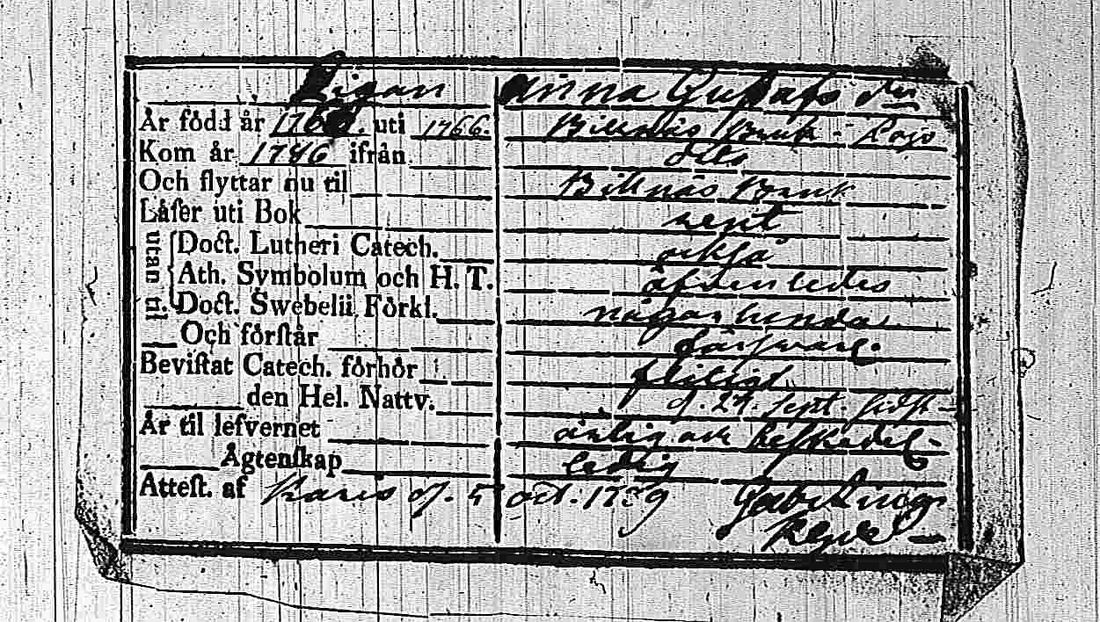 Pigan Anna Gustafs dtr
År född år 1766. uti 1766. Billnäs Bruk - Lojo
Kom år 1786 ifrån dito
Och flyttar nu til Billnäs Bruk
Låſer uti Bok rent
utan til. Doct. Lutheri Catech. också
Ath. Symbolum och H. T. äfvenledes
Doct. Swebelii Förkl. någorlunda
Och förſtår förſvarl.
Beviſtat Catech. förhör flitigt
den Hel. Nattv. d. 27. Sept. ſidſt-
År til lefvernet ärlig och beſkedel-
Ågtenſkap ledig
Atteſt. af Karis d. 5 oct. 1789